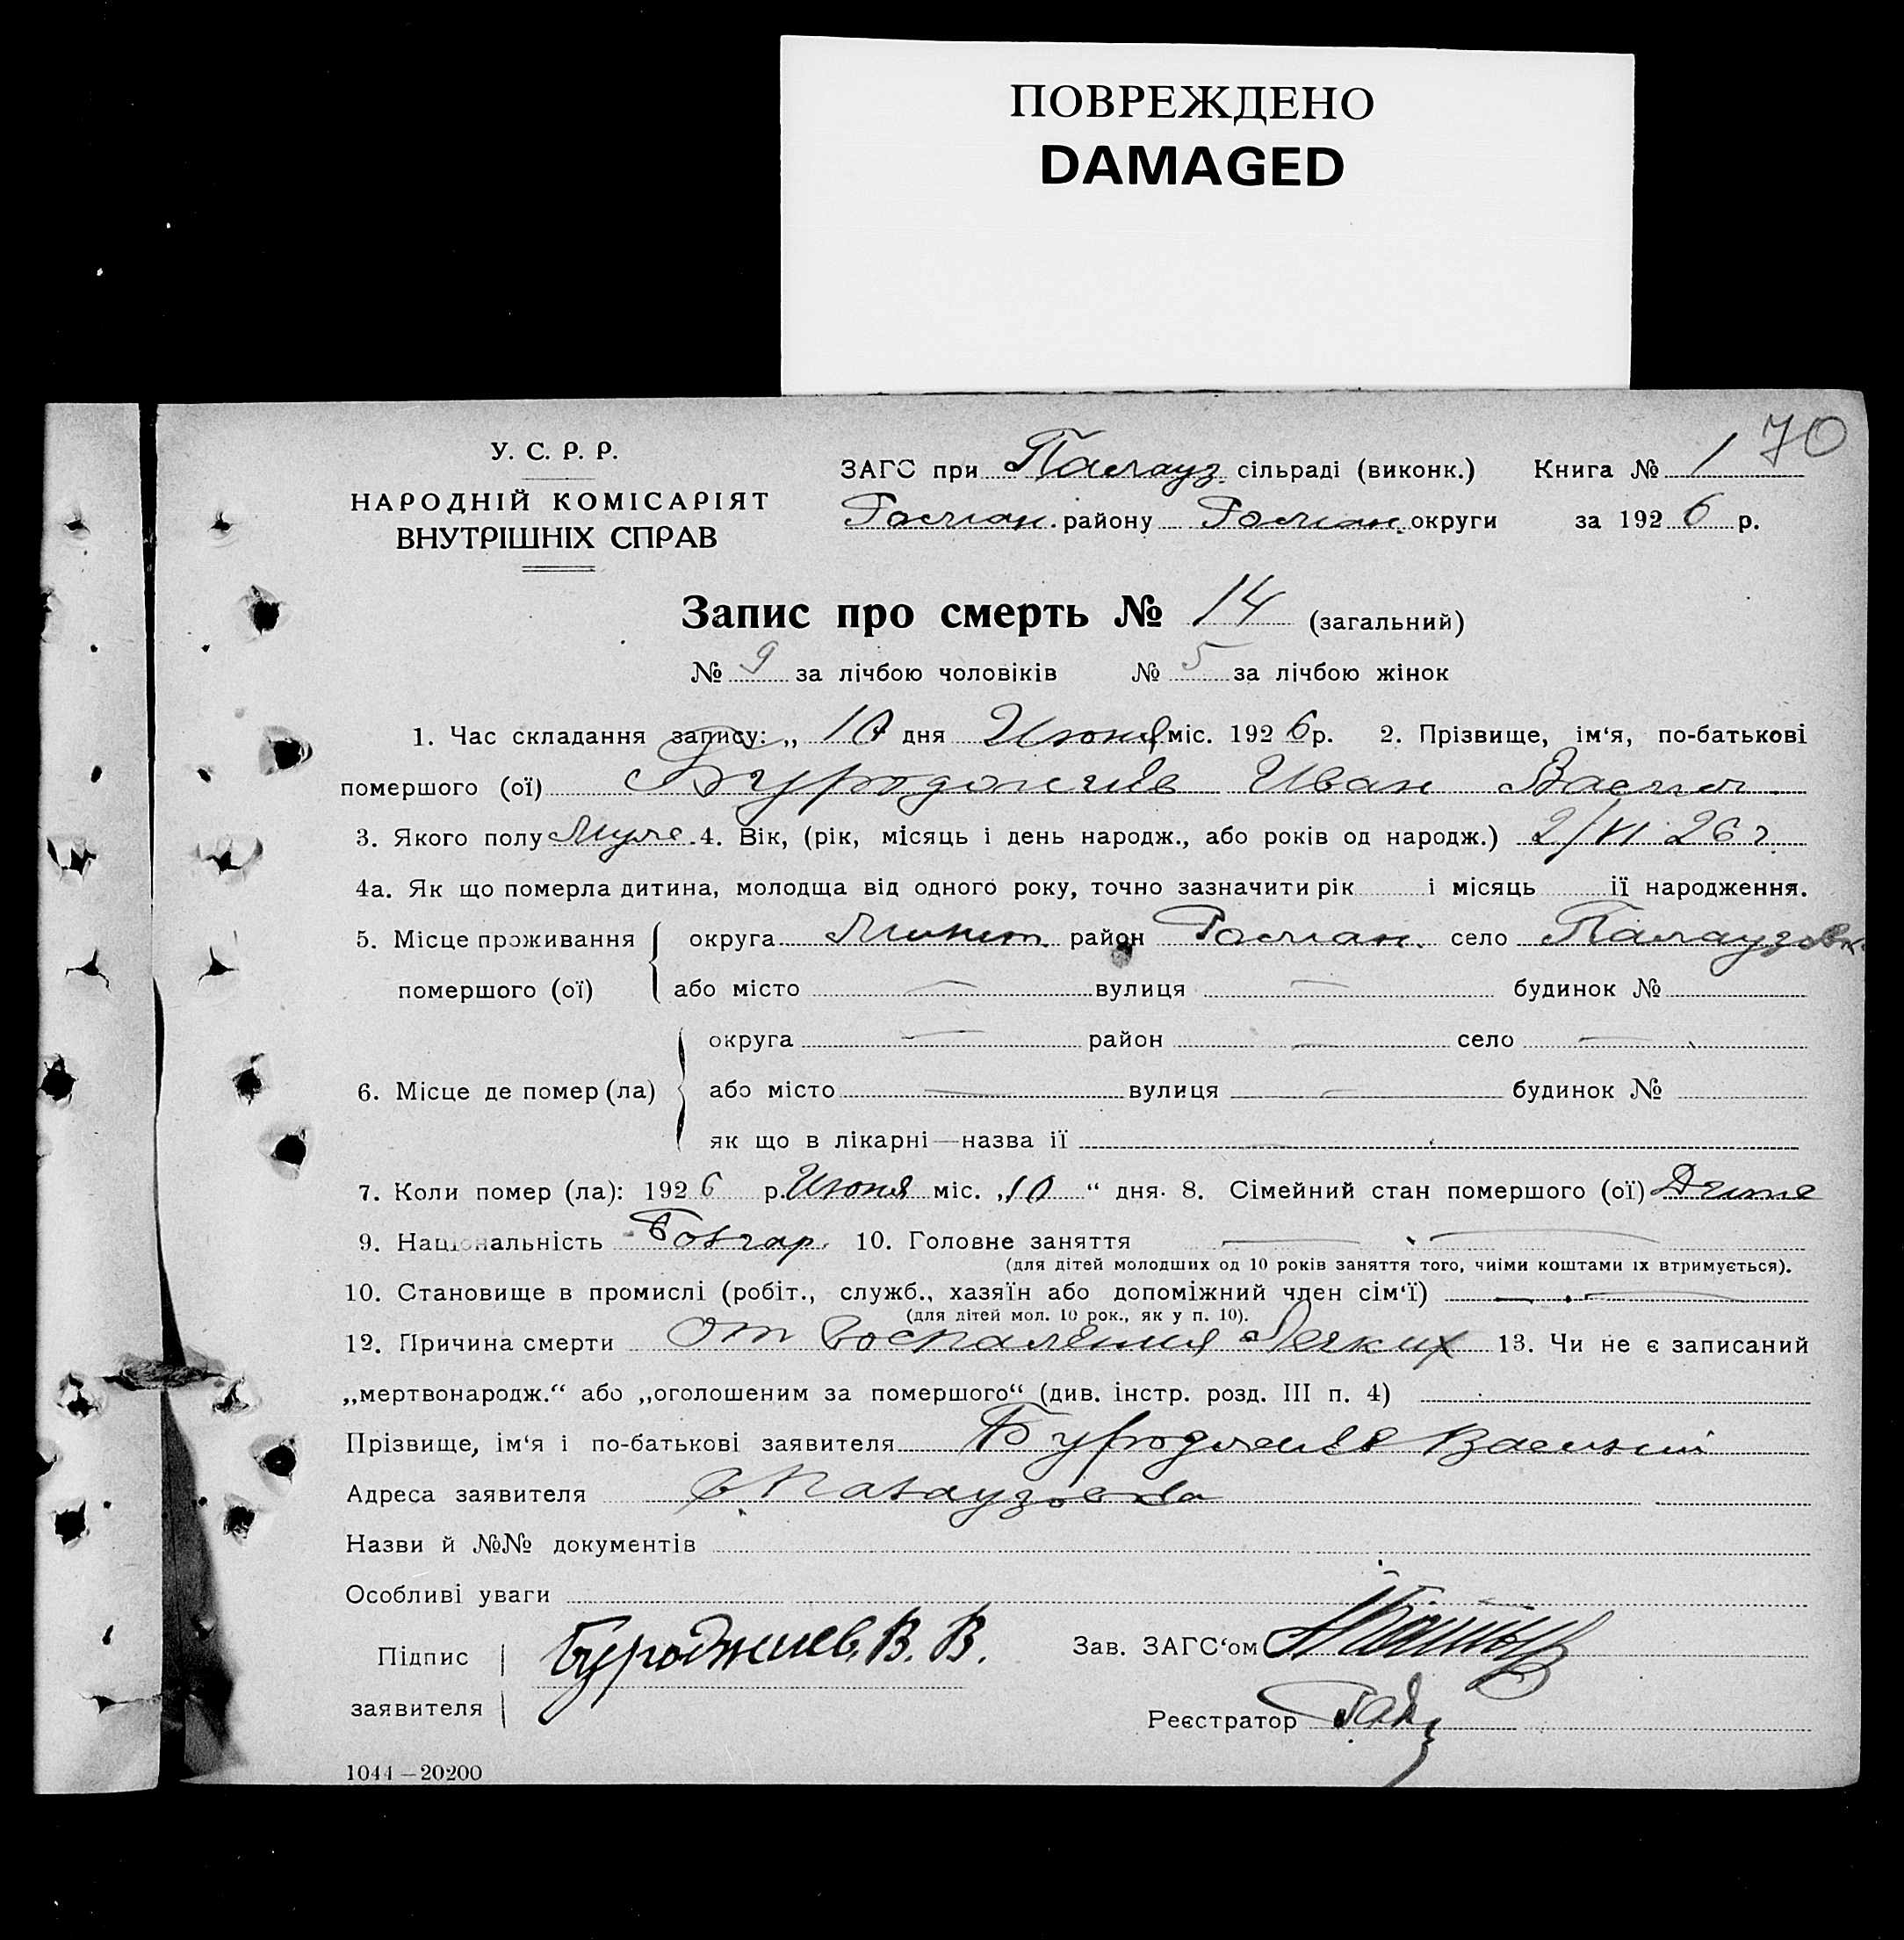 ПОВРЕЖДЕНО
DAMAGED
70
У. С. Р. Р.
НАРОДНІЙ КОМІСАРІЯТ
ВНУТРІШНІХ СПРАВ
ЗАГС при Палауз сільраді (виконк.) Книга № 1
району округи за 1926 р.
Запис про смерть № 14 (загальний)
№ 9 за лічбою чоловіків № 5 за лічбою жінок
1. Час складання запису: „ 10 дня Июня міс. 1926 р. 2. Прізвище, ім‘я, по-батькові
помершого (ої) Иван Васил
3. Якого полу Муже. 4. Вік, (рік, місяць і день народж., або років од народж.) 2/VI 26 г.
4а. Як що померла дитина, молодща від одного року, точно зазначити рік і місяць її народження.
5. Місце проживання округа район село Палаузовк
помершого (ої) або місто — вулиця — будинок №
округа — район — село —
6. Місце де помер (ла) або місто — вулиця — будинок №
як що в лікарні—назва ії
7. Коли помер (ла): 1926 р. Июня міс. „10“ дня. 8. Сімейний стан помершого (ої) Дите
9. Національність Болгар. 10. Головне заняття —
(для дітей молодших од 10 років заняття того, чиїми коштами їх втримується).
10. Становище в промислі (робіт., служб., хазяїн або допоміжний член сім‘ї) —
(для дітей мол. 10 рок., як у п. 10).
12. Причина смерти От воспаления Легких 13. Чи не є записаний
„мертвонародж.“ або „оголошеним за помершого“ (див. інстр. розд. III п. 4)
Прізвище, ім‘я і по-батькові заявителя Василий
Адреса заявителя с. Палаузовка
Назви й №№ документів
Особливі уваги
Підпис Буроджиев В. В. Зав. ЗАГС‘ом
заявителя
Реєстратор
1044—20200